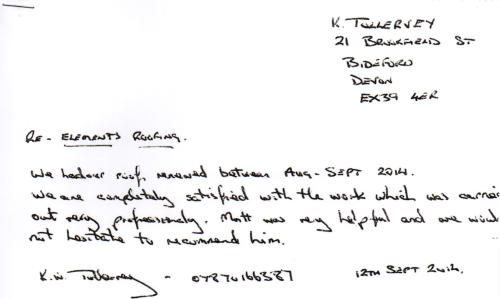 K. TULLERVEY
21 BROOKFIELD ST
BIDEFORD
DEVON
EX39 4ER
RE- ELEMENTS ROOFING.
We had our roof, renewed between Aug- SEPT 2014.
We are completely satisfied with the work which was carried
out very professionaly. Matt was very helpful and we would
not hesitate to recommend him.
K.W. Tullervey - 07870166387 12TH SEPT 2014.